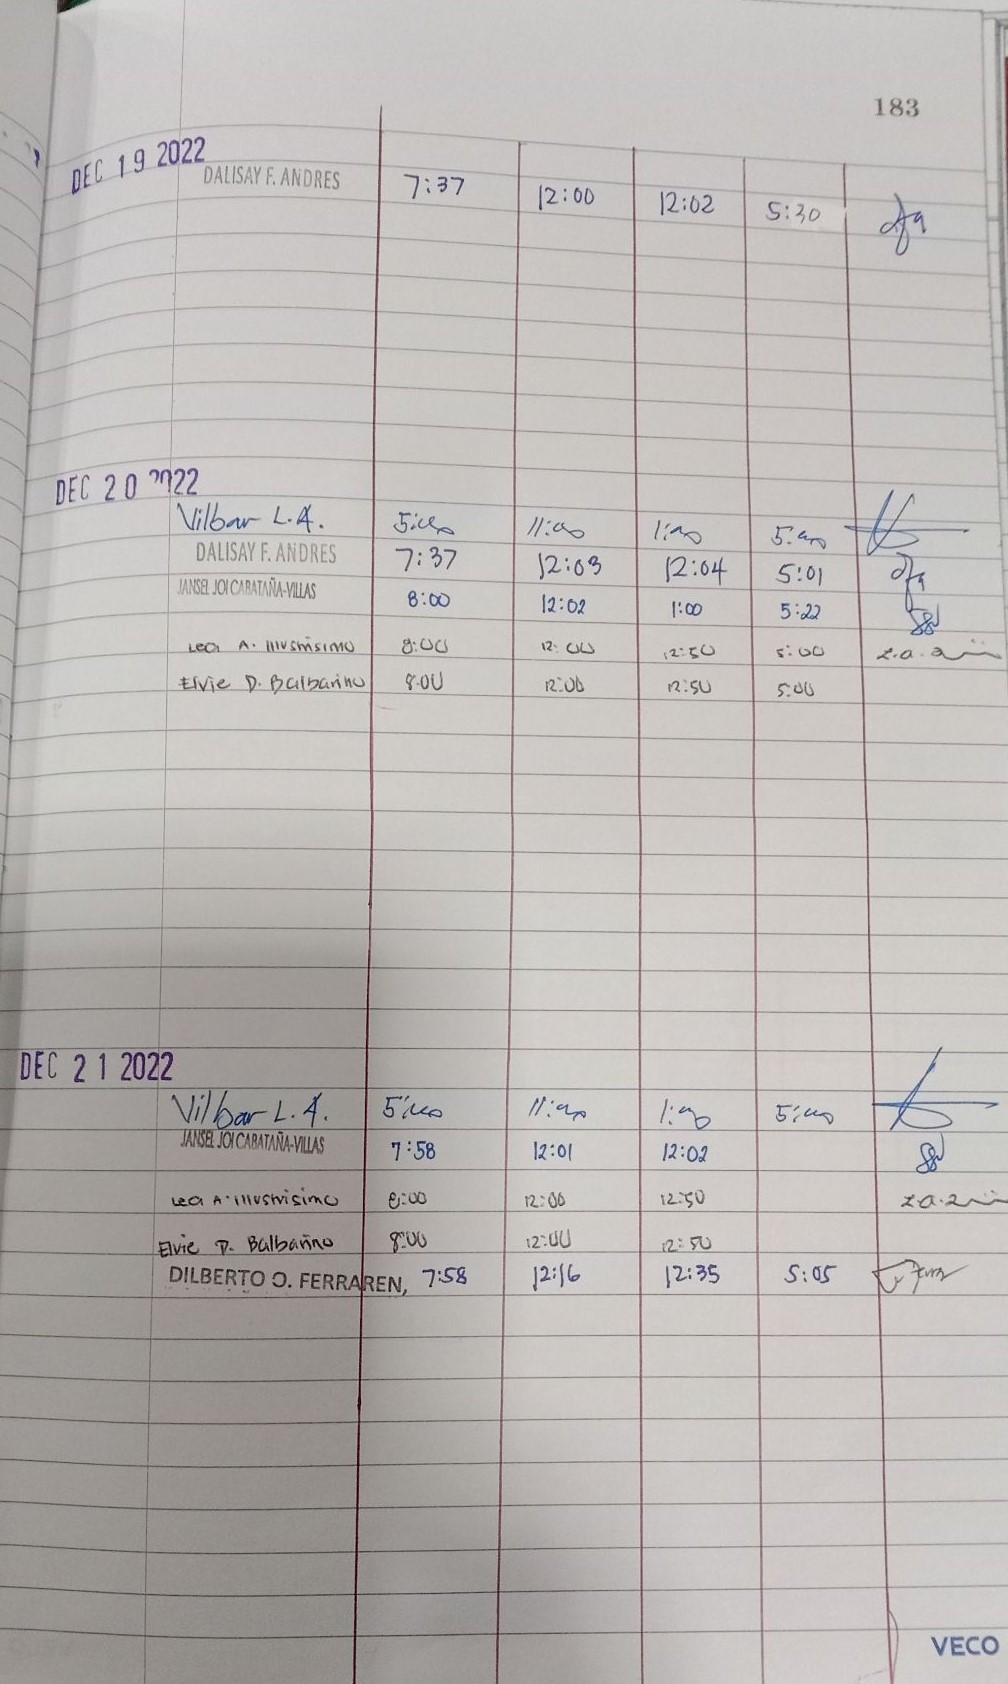 183
DEC 19 2022
DALISAY F. ANDRES 7:37 12:00 12:02 5:30
DEC 20 2022
Vilbar L.A. 5:00 11:00 1:00 5:00
DALISAY F. ANDRES 7:37 12:03 12:04 5:01
JANSEL JOI CABATAÑA-VILLAS 8:00 12:02 1:00 5:22
Lea A. Illustrisimo 8:00 12:00 12:50 5:00
Elvie D. Balbarino 8:00 12:00 12:50 5:00
DEC 21 2022
Vilbar L.A. 5:00 11:00 1:00 5:00
JANSEL JOI CABATAÑA-VILLAS 7:58 12:01 12:02
Lea A. Illustrisimo 8:00 12:00 12:50
Elvie D. Balbarino 8:00 12:00 12:50
DILBERTO O. FERRAREN, 7:58 12:16 12:35 5:05
VECO